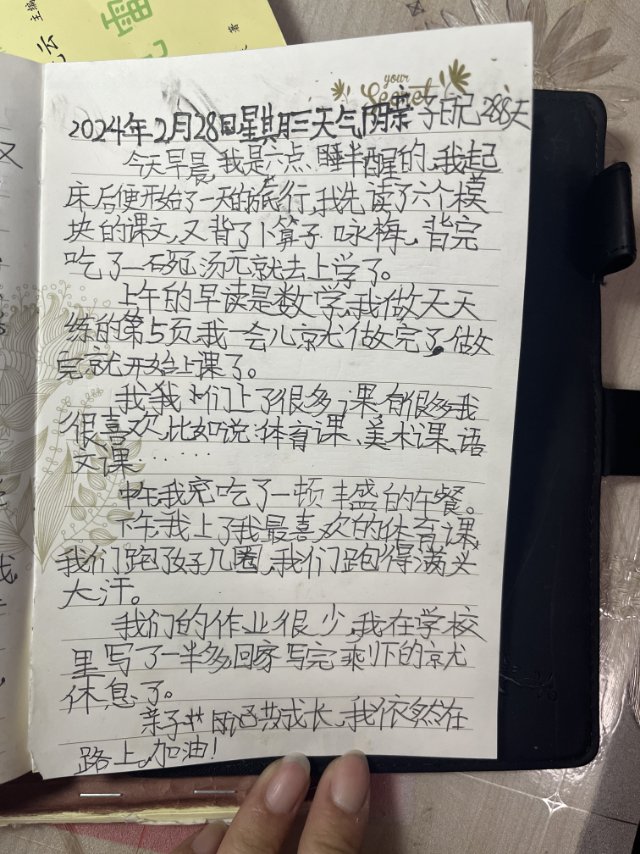 主编
your
Secret
2024年2月28日星期三天气阴亲子日记288天
今天早晨,我是六点睡半醒的,我起
床后便开始了一天的旅行,我先读了六个模
块的课文,又背了卜算子咏梅,背完
吃了一碗汤元就去上学了。
上午的早读是数学,我做天天
练的第5页,我一会儿京尤做完了,做
完就开始上课了。
我我们上了很多课,有很多我
很喜欢,比如说:体育课、美术课、语
文课……
中午我吃了一顿丰盛的午餐。
下午我上了我最喜欢的体育课,
我们跑了好几圈,我们跑得满头
大汗。
我们的作业很少,我在学校
里写了一半多回家写完剩下的京尤
休息了。
亲子共成长,我依然在
路上。加油!